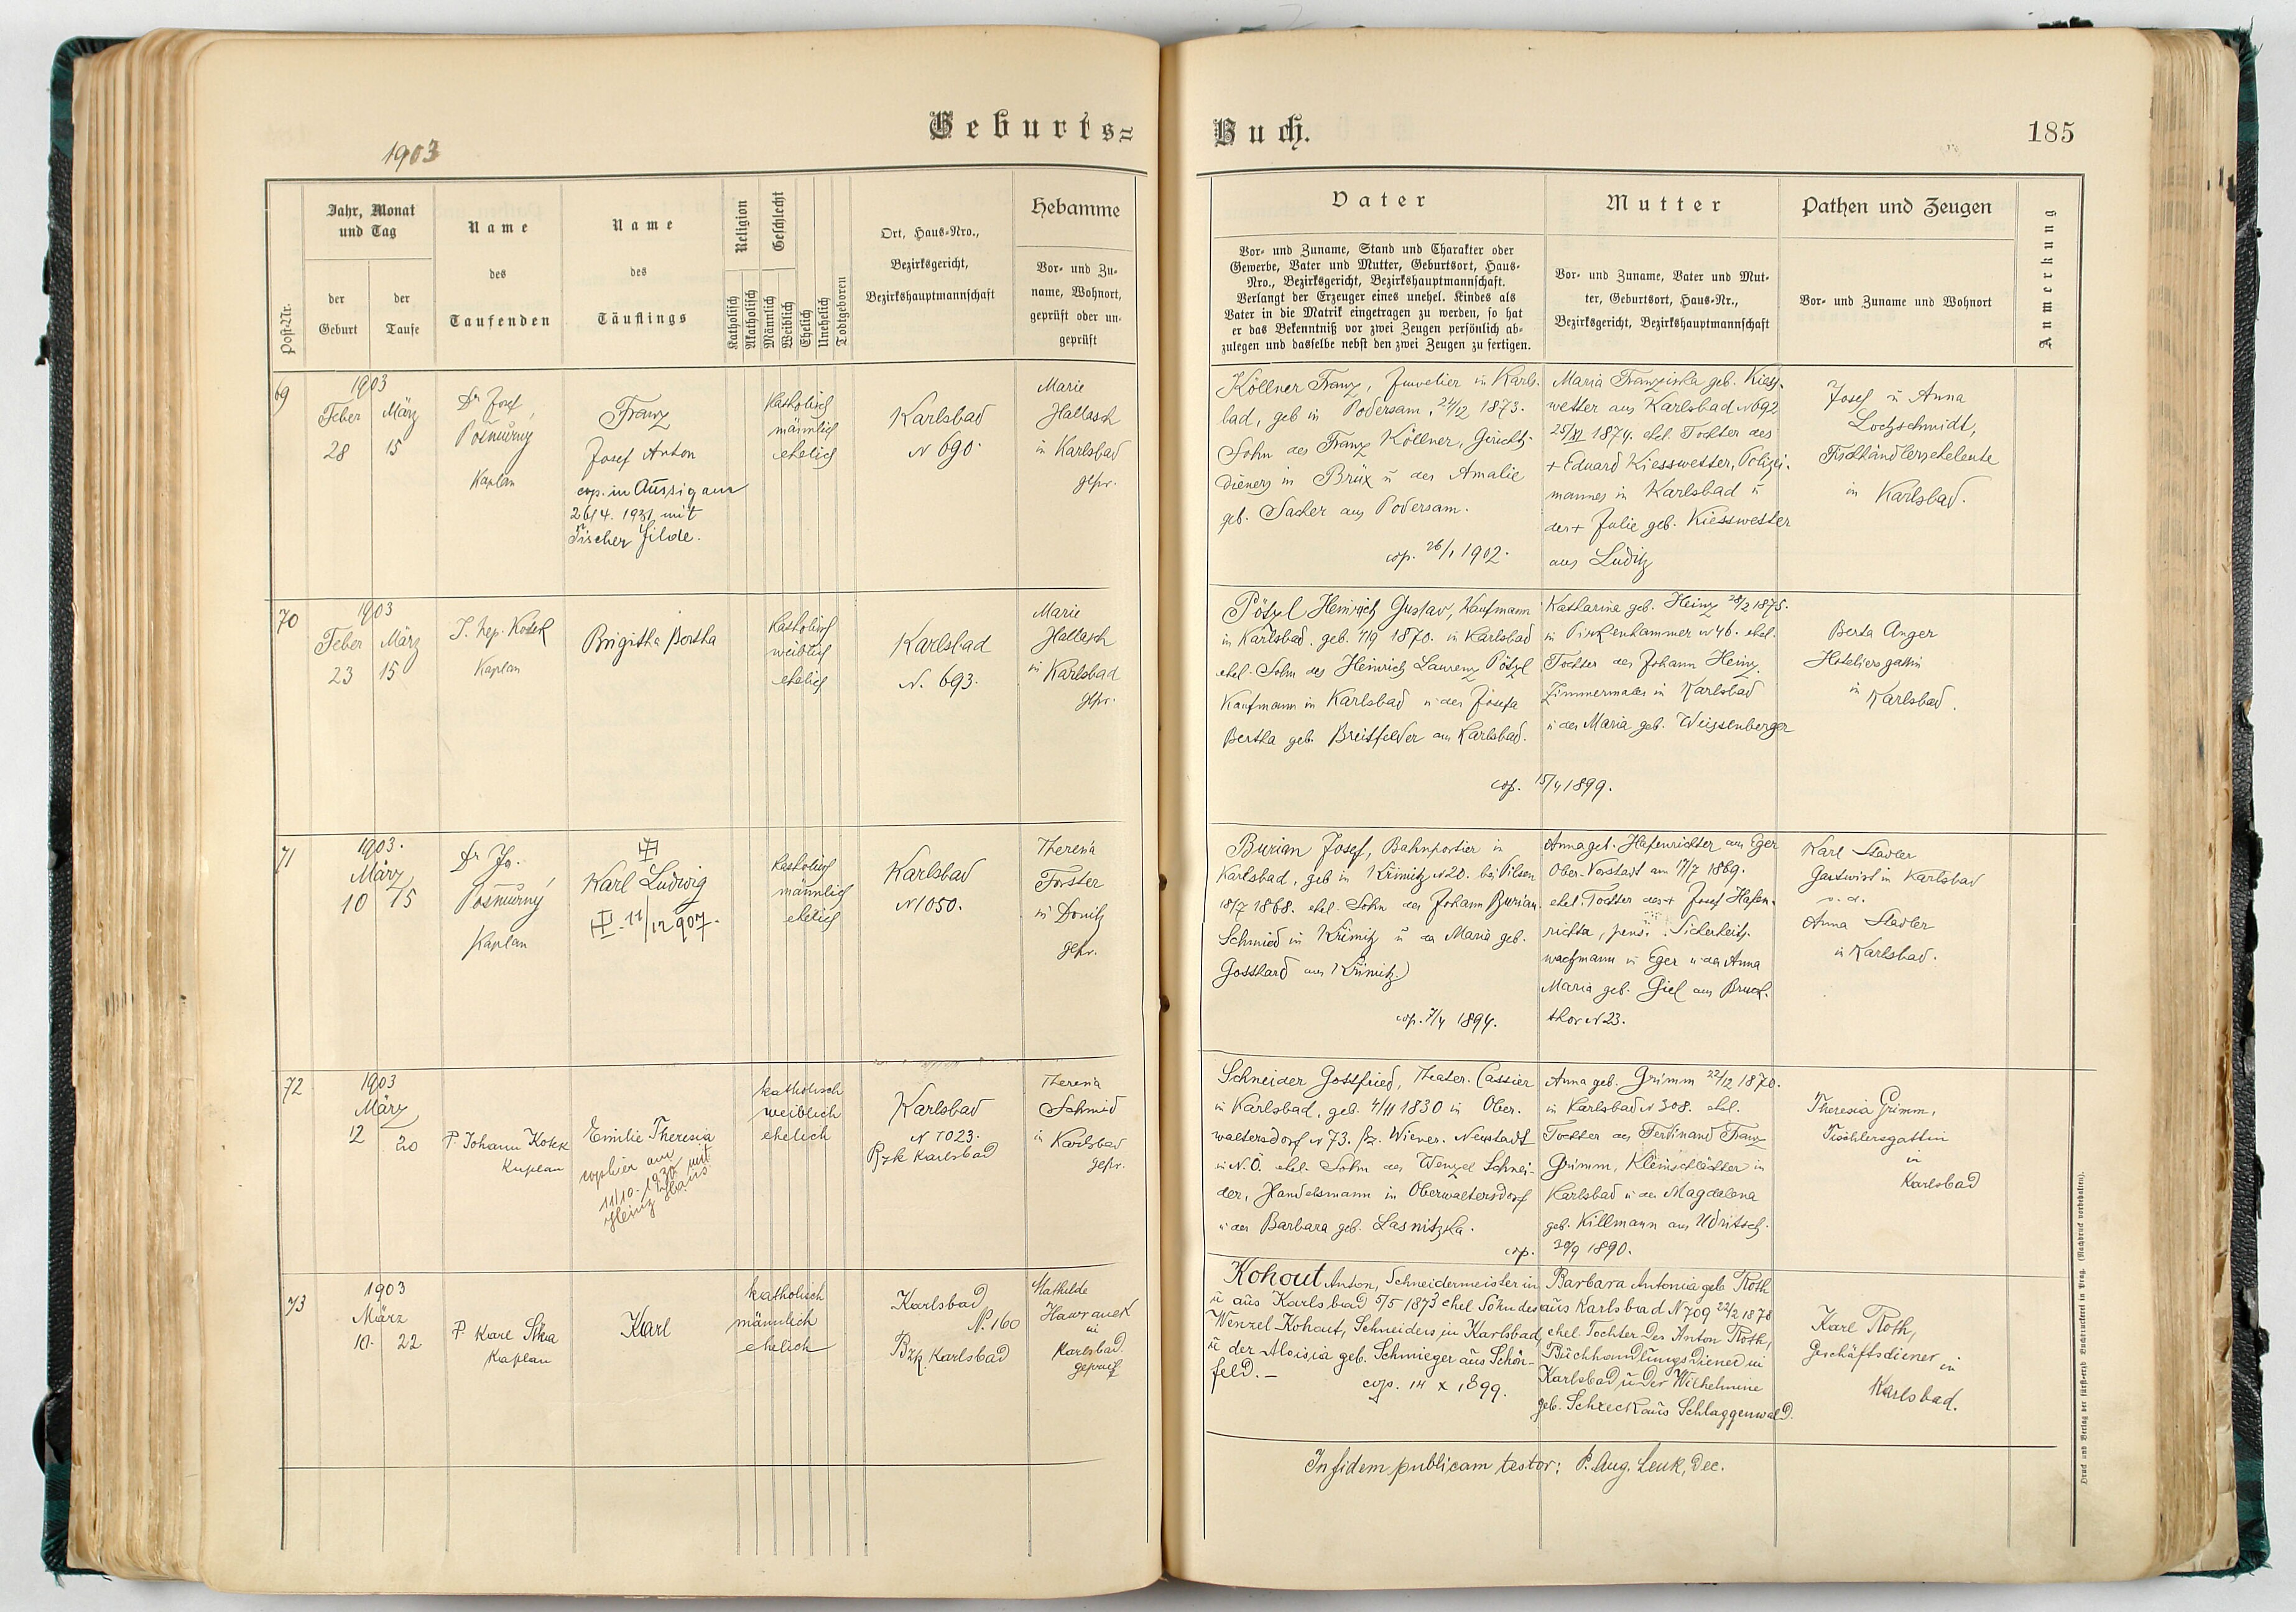 1903
Geburts=
Post-Nr.
Jahr, Monat
und Tag
der
Geburt
der
Taufe
Name
des
Taufenden
Name
des
Täuflings
Religion
Katholisch
Akatholisch
Geschlecht
Männlich
Weiblich
Ehelich
Unehelich
Todtgeboren
Ort, Haus-Nro.,
Bezirksgericht,
Bezirkshauptmannschaft
Hebamme
Vor- und Zu-
name, Wohnort,
geprüft oder un-
geprüft
69
1903
Feber März
28 15
Dr Josef
Pošmůrný
Kaplan
Franz
Josef Anton
cop. in Aussig am
26/4. 1931 mit
Tischer Hilde.
katholisch
männlich
ehelich
Karlsbad
N 690.
Marie
Hallasch
in Karlsbad
gepr.
70
1903
Feber März
23 15
J. Nep. Košek
Kaplan
Brigitha Bertha
katholisch
weiblich
ehelich
Karlsbad
N. 693.
Marie
Hallasch
in Karlsbad
gepr.
71
1903.
März
10 15
Dr Jos.
Pošmůrný
Kaplan
Karl Ludwig
11/12 907.
katholisch
männlich
ehelich
Karlsbad
N 1050.
Theresia
Forster
in Donitz
gepr.
72
1903
März
12 20
P. Johann Košek
Kaplan
Emilie Theresia
copulier am
11/10. 1930 mit
Heinz Hans
katholisch
weiblich
ehelich
Karlsbad
N 1023.
Bzk Karlsbad
Theresia
Schmid
in Karlsbad
gepr.
73
1903
März
10. 22
P. Karl
Kaplan
Karl
katholisch
männlich
ehelich
Karlsbad
N. 160
Bzk. Karlsbad
Mathilde
Hawranek
in
Karlsbad.
geprüft
Buch.
185
Vater
Vor- und Zuname, Stand und Charakter oder
Gewerbe, Vater und Mutter, Geburtsort, Haus-
Nro., Bezirksgericht, Bezirkshauptmannschaft.
Verlangt der Erzeuger eines unehel. Kindes als
Vater in die Matrik eingetragen zu werden, so hat
er das Bekenntniß vor zwei Zeugen persönlich ab-
zulegen und dasselbe nebst den zwei Zeugen zu fertigen.
Mutter
Vor- und Zuname, Vater und Mut-
ter, Geburtsort, Haus-Nr.,
Bezirksgericht, Bezirkshauptmannschaft
Pathen und Zeugen
Vor- und Zuname und Wohnort
Anmerkung
Köllner Franz, Juwelier in Karls-
bad, geb in Podersam, 24/12 1873.
Sohn des Franz Köllner, Gerichts-
dieners in Brüx u der Amalie
geb. Sacher aus Podersam.
cop. 26/1 1902.
Maria Franziska geb. Kiess-
wetter aus Karlsbad N 692
25/XI 1874. ehel. Tochter des
+ Eduard Kiesswetter, Polizei-
mannes in Karlsbad u
der + Julie geb. Kiesswetter
aus Luditz
Josef u Anna
Lochschmidt,
Fischhändlerseheleute
in Karlsbad.
Pötzl Heinrich Gustav, Kaufmann
in Karlsbad, geb. 7/9 1870. in Karlsbad
ehel. Sohn des Heinrich Laurenz Pötzl
Kaufmann in Karlsbad u der Josefa
Bertha geb. Breitfelder aus Karlsbad.
cop. 15/4 1899.
Katharina geb. Heinz 28/2 1875.
in Pirkenhammer N 46. ehel.
Tochter des Johann Heinz,
Zimmermaler in Karlsbad
u der Maria geb. Weissenberger
Berta Anger
Hoteliersgattin
in
Karlsbad.
Burian Josef, Bahnportier in
Karlsbad, geb in Krimitz N 20. bei Pilsen
18/7 1868. ehel. Sohn des Johann Burian
Schmied in Krimitz u der Maria geb.
Gotthard aus Krimitz
cop. 7/4 1894.
Anna geb. Hafenrichter aus Eger
Ober-Vorstadt am 17/7 1869.
ehel. Tochter des + Josef Hafen-
richter, pens. Sicherheits-
wachmann in Eger u der Anna
Maria geb. Giel aus Bruck-
thor N 23.
Karl Stadler
Gastwirt in Karlsbad
u. d.
Anna Stadler
in Karlsbad.
Schneider Gottfried, Theater-Cassier
in Karlsbad, geb. 4/11 1830 in Ober-
waltersdorf N 73. bz. Wiener-Neustadt
in N.Ö. ehel. Sohn des Wenzel Schnei-
der, Handelsmann in Oberwaltersdorf
u der Barbara geb. Lasnitzka.
cop. 30/9 1890.
Anna geb. Grimm 22/12 1870.
in Karlsbad N 308. ehel.
Tochter des Ferdinand Franz
Grimm, Kleinschlächter in
Karlsbad u der Magdalena
geb. Killmann aus Udritsch.
Theresia Grimm,
Tischlersgattin
in
Karlsbad
Kohout Anton, Schneidermeister in
u aus Karlsbad 5/5 1873 ehel Sohn des
Wenzel Kohout, Schneiders in Karlsbad,
u der Aloisia geb. Schmieger aus Schön-
feld. —
cop. 14 X 1899.
Barbara Antonia geb Roth
aus Karlsbad N 709 22/2 1878
ehel. Tochter des Anton Roth,
Buchhandlungsdiener in
Karlsbad u der Wilhelmine
geb. Schreck aus Schlaggenwald.
Karl Roth,
Geschäftsdiener in
Karlsbad.
In fidem publicam testor: P. Aug. Leuk, Dec.
Druck und Verlag der fürsterzb. Buchdruckerei in Prag. (Nachdruck vorbehalten).